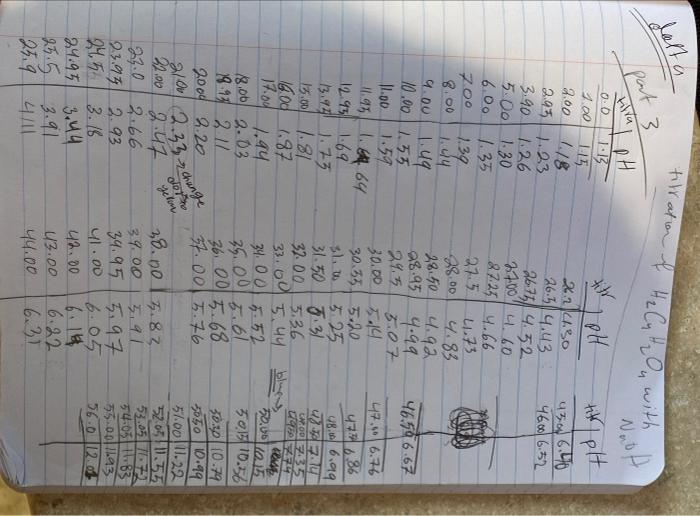 Data
part 3
titration of H2C4H4O4 with NaOH
pH
0.0 1.13
1.00 1.15
2.00 1.18
2.95 1.23
3.90 1.26
5.00 1.30
6.00 1.35
7.00 1.39
8.00 1.44
9.00 1.49
10.00 1.55
11.00 1.59
11.95 1.64
12.95 1.69
13.95 1.75
15.00 1.81
16.00 1.87
17.00 1.94
18.00 2.03
18.95 2.11
20.00 2.20
21.00 2.33
22.00 2.47
23.0 2.66
23.95 2.93
24.5 3.18
24.95 3.44
25.5 3.91
25.9 4.11
pH
26.2 4.30
26.5 4.43
26.75 4.52
27.00 4.60
27.25 4.66
27.5 4.73
28.00 4.83
28.50 4.92
28.95 4.99
29.5 5.07
30.00 5.14
30.55 5.20
5.25
31.50 5.31
32.00 5.36
33.00 5.44
34.00 5.52
35.00 5.61
36.00 5.68
37.00 5.76
38.00 5.83
39.00 5.91
39.95 5.97
41.00 6.05
42.00 6.14
43.00 6.22
44.00 6.31
pH
45.00
46.00 6.52
46.50 6.67
47.00 6.76
47.5 6.86
48.00 6.99
7.35
49.50 7.74
blue→
50.00 10.15
10.56
10.79
50.50 10.99
51.00 11.22
52.05 11.55
53.05 11.72
54.05 11.83
55.00 11.93
56.0